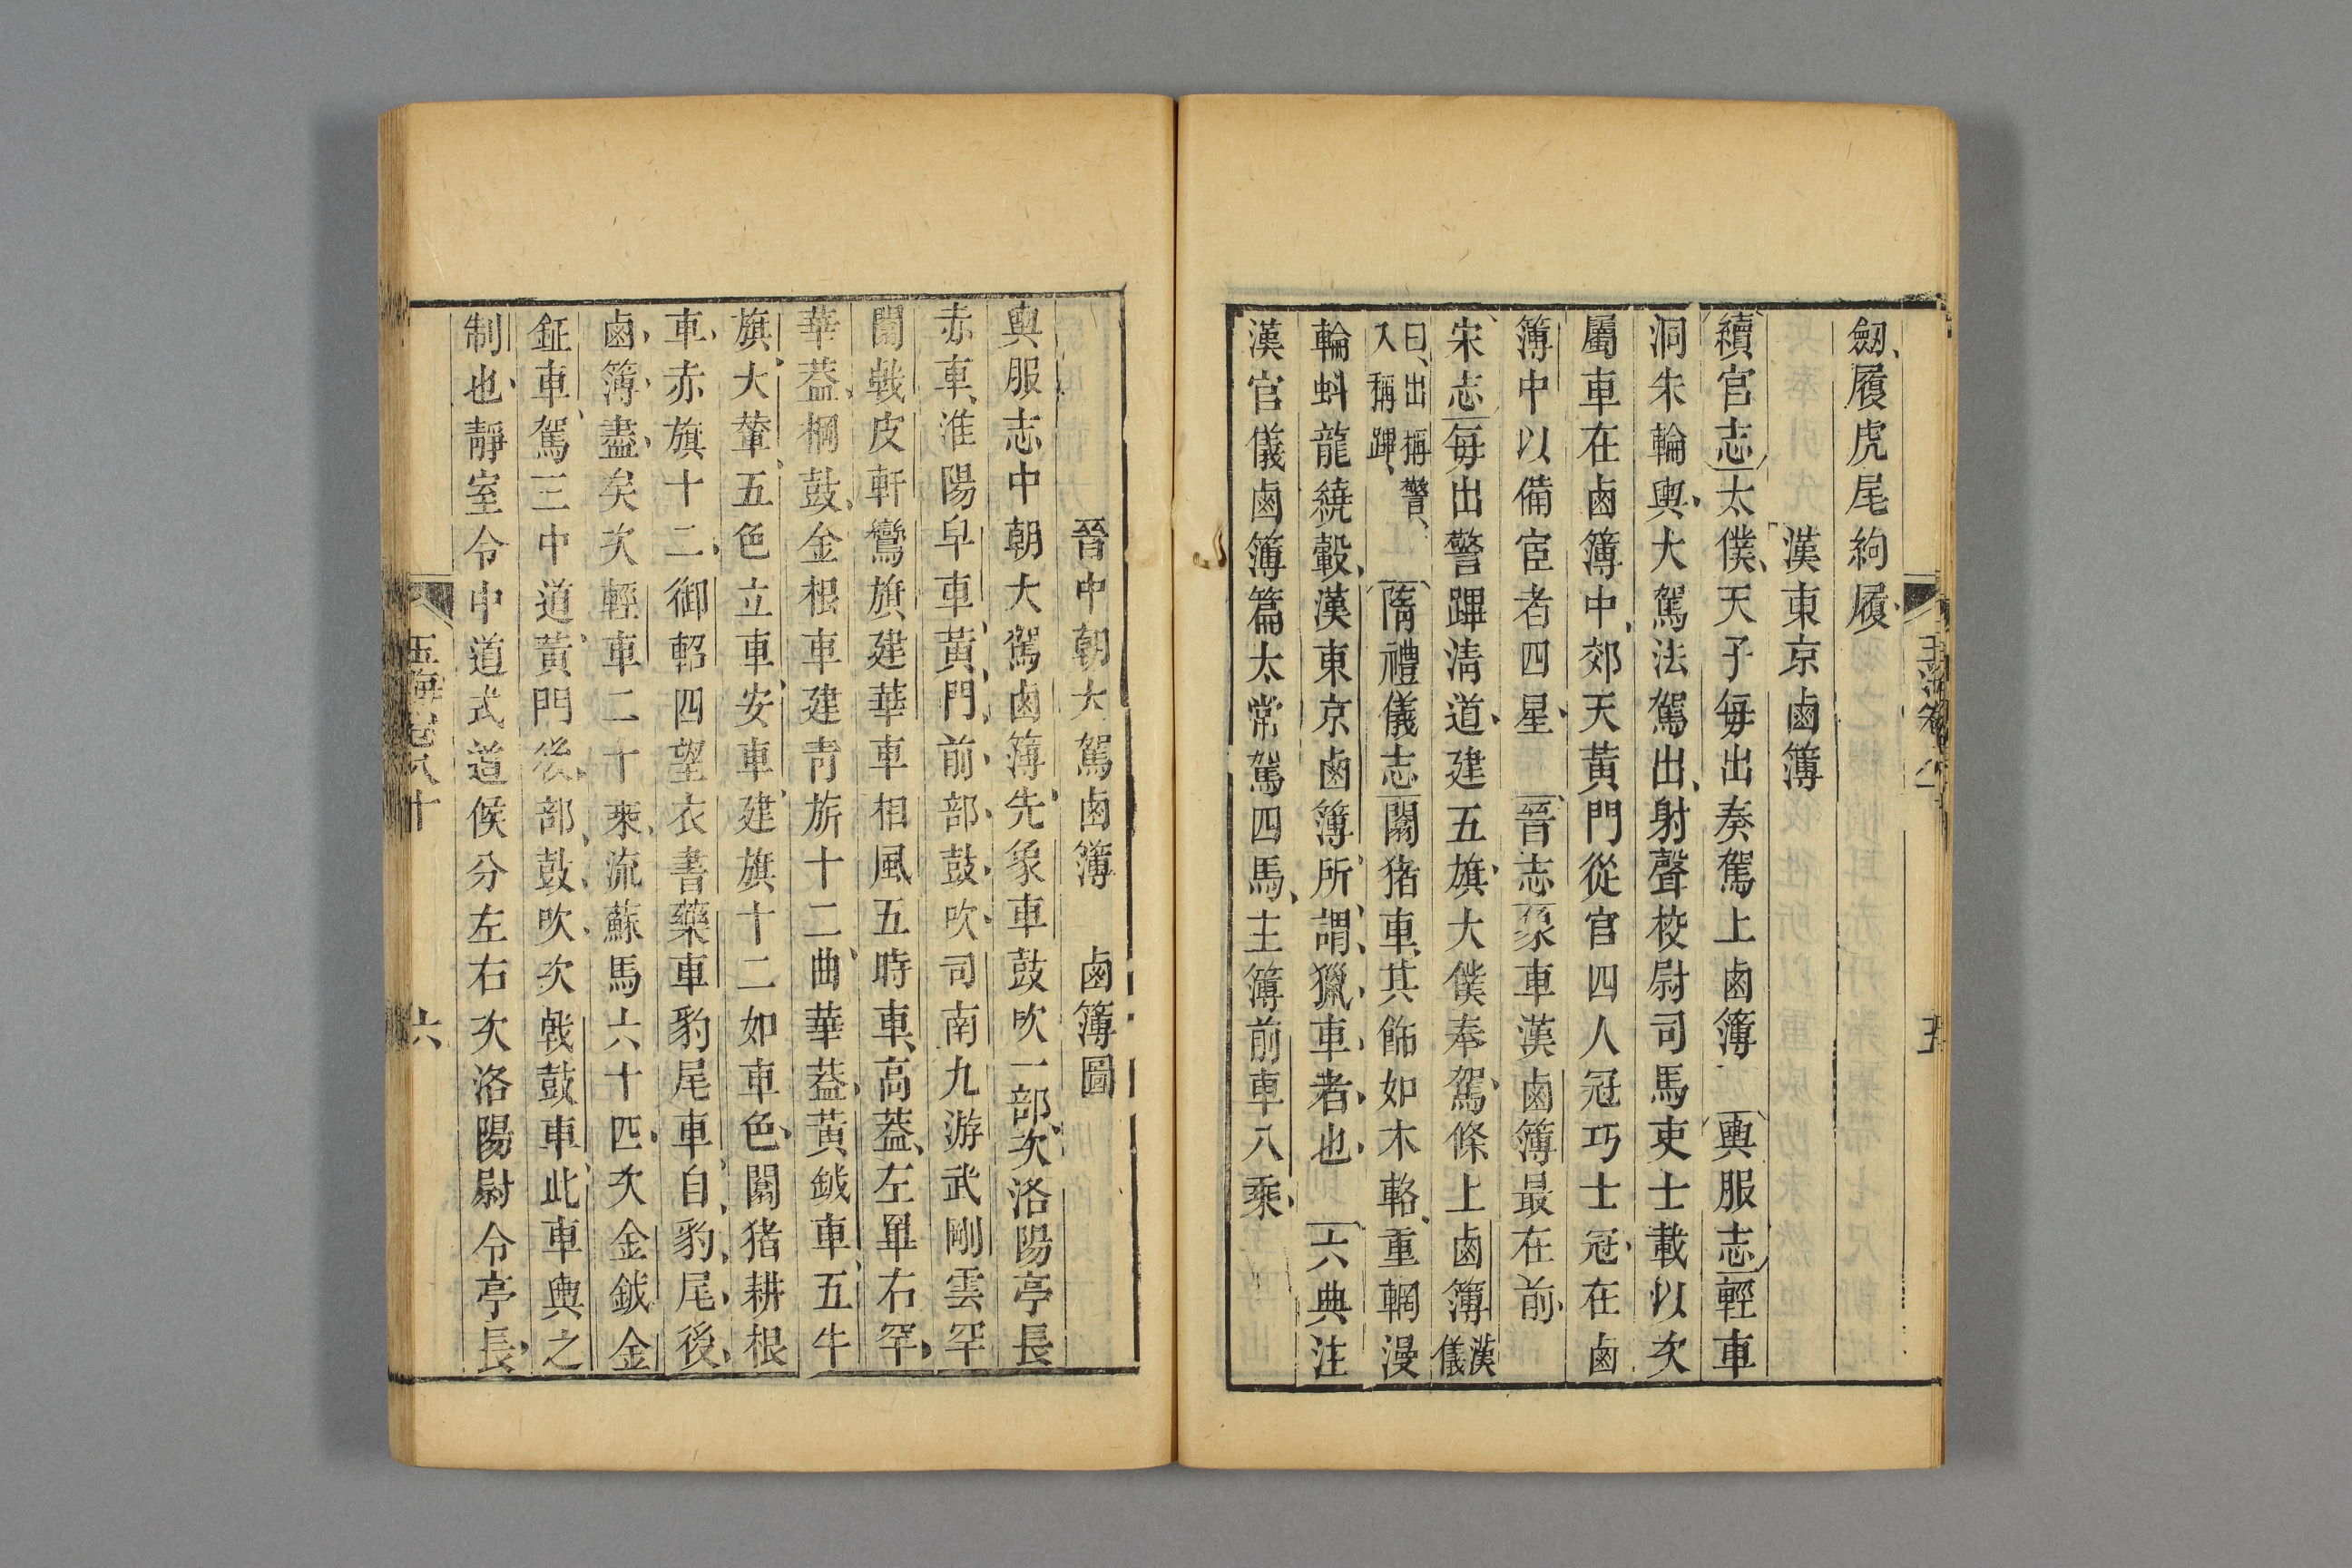 劔履虎尾絇履
漢東京鹵簿
續官志太僕天子每出奏駕上鹵簿 輿服志輕車
洞朱輪輿大駕法駕出射聲校尉司馬吏士載以次
屬車在鹵簿中郊天黃門從官四人冠巧士冠在鹵
簿中以備宦者四星 晉志象車漢鹵簿最在前
宋志每出警蹕清道建五旗大僕奉駕條上鹵簿漢儀
曰出稱警入稱蹕 隋禮儀志闟猪車其飾如木輅重輞漫
輪蚪龍繞轂漢東京鹵簿所謂獵車者也 六典注
漢官儀鹵簿篇太常駕四馬主簿前車八乘
晉中朝大駕鹵簿 鹵簿圖
輿服志中朝大駕鹵簿先象車鼓吹一部次洛陽亭長
赤車淮陽皁車黃門前部鼓吹司南九游武剛雲罕
闟戟皮軒鸞旗建華車相風五時車高葢左罼右罕
華葢棡鼓金根車建青旂十二曲華葢黃鉞車五牛
旗大輦五色立車安車建旗十二如車色闟猪耕根
車赤旗十二御軺四望衣書藥車豹尾車自豹尾後
鹵簿盡矣次輕車二十乘流蘇馬六十四次金鉞金
鉦車駕三中道黃門後部鼓吹次戟鼓車此車輿之
制也靜室令中道式道候分左右次洛陽尉令亭長
玉海卷八十
六